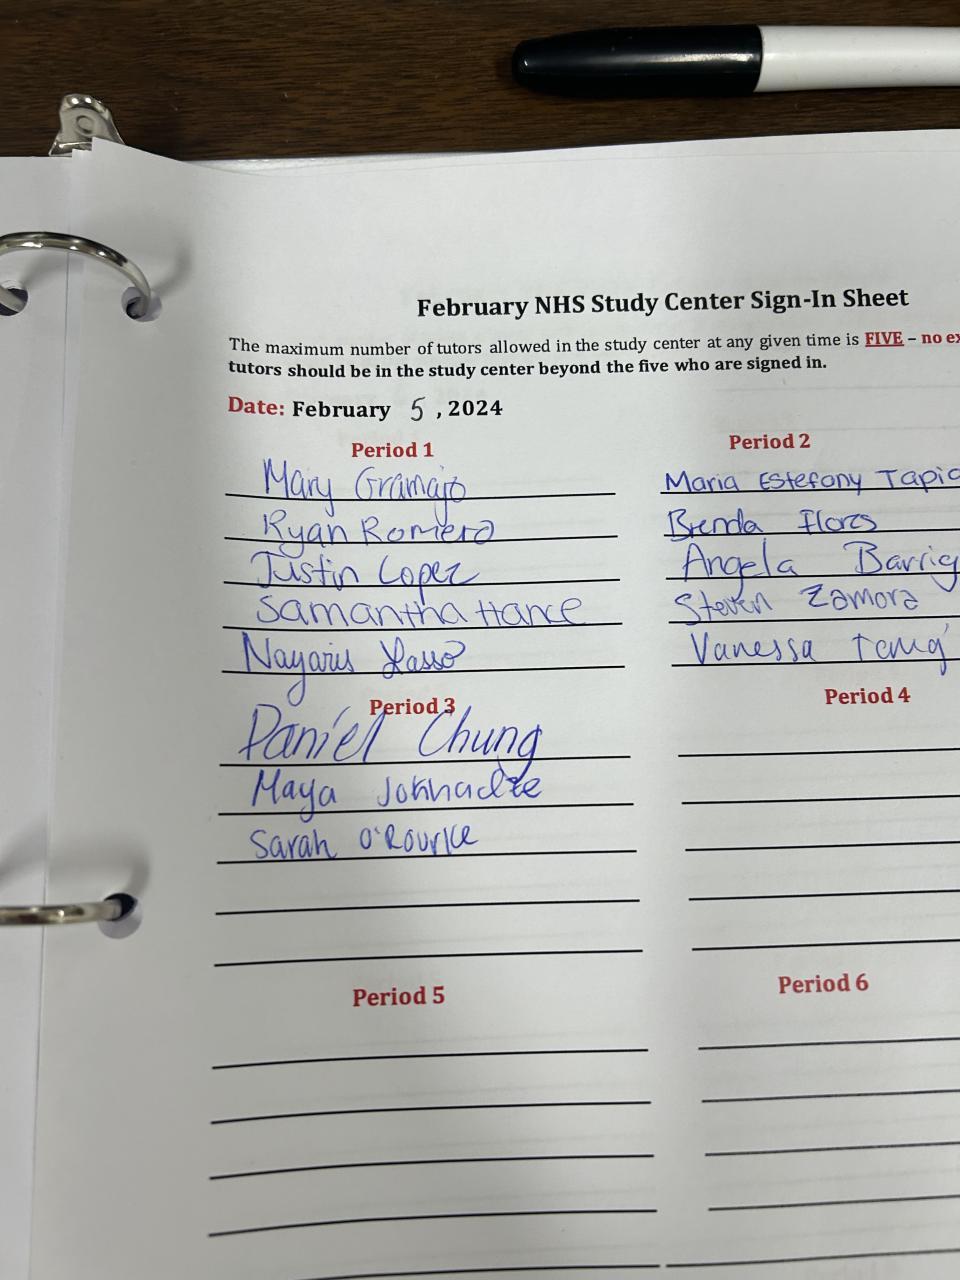 February NHS Study Center Sign-In Sheet
The maximum number of tutors allowed in the study center at any given time is FIVE – no ex
tutors should be in the study center beyond the five who are signed in.
Date: February 5, 2024
Period 1
Mary Gramajo
Ryan Romero
Justin Lopez
Samantha Hance
Nayaris Lasso
Period 2
Maria Estefony Tapia
Brenda Flores
Angela Barrig
Steven Zamora
Vanessa
Period 3
Daniel Chung
Maya Jokhadze
Sarah O'Rourke
Period 4
Period 5
Period 6